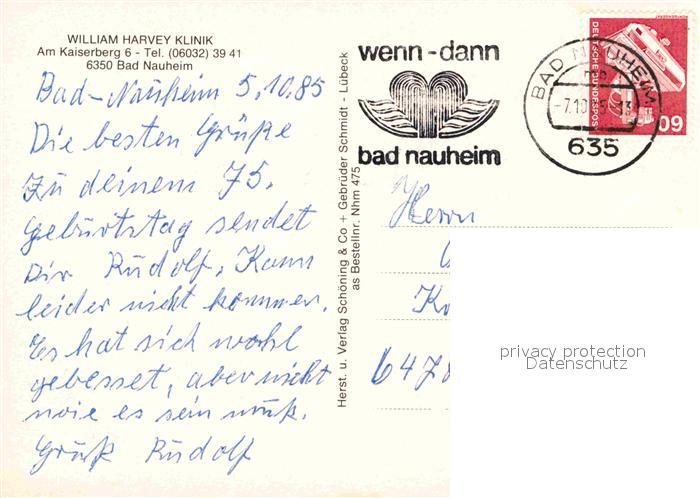 WILLIAM HARVEY KLINIK
Am Kaiserberg 6 - Tel. (06032) 39 41
6350 Bad Nauheim
Bad-Nauheim 5.10.85
Die besten Grüße
zu deinem 75.
Geburtstag sendet
Dir Rudolf, Kann
leider nicht kommen.
Es hat sich wohl
gebesset, aber nicht
wie es sein muß.
Gruß Rudolf
Herst. u. Verlag Schöning & Co + Gebrüder Schmidt - Lübeck
as Bestellnr. Nhm 475
wenn-dann
bad nauheim
BAD NAUHEIM
-7.10
-13
635
DEUTSCHE BUNDESPOST
60
Herrn
6478
privacy protection
Datenschutz